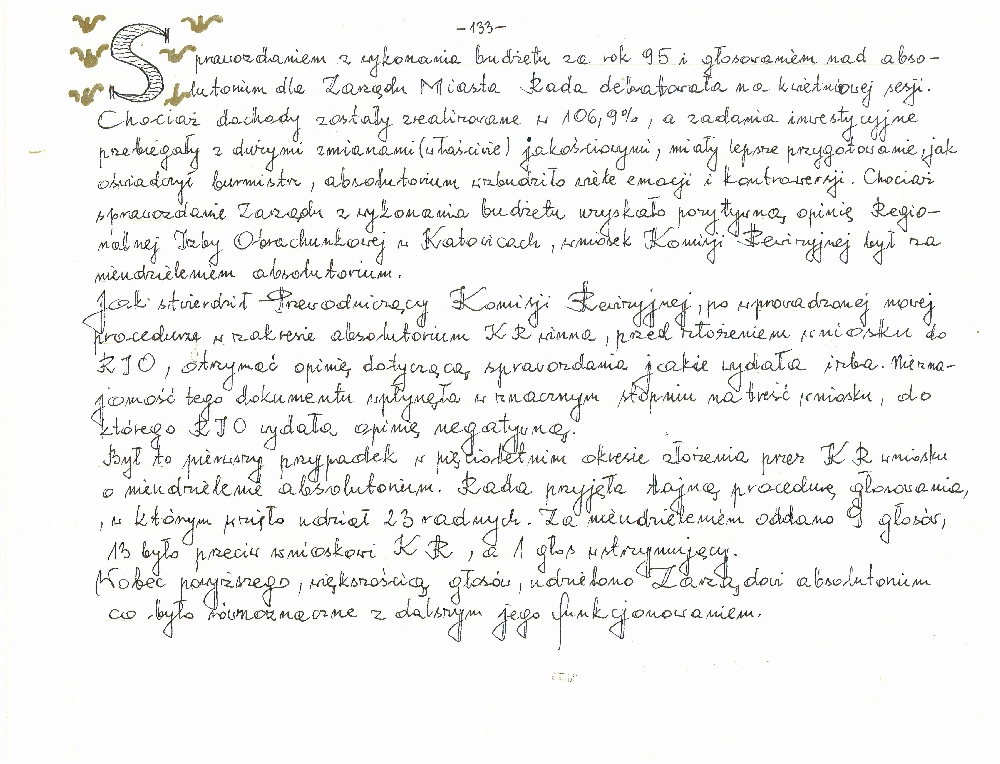 -133-
Sprawozdaniem z wykonania budżetu za rok 95 i głosowaniem nad abso-
lutorium dla Zarządu Miasta Rada debatowała na kwietniowej sesji.
Chociaż dochody zostały zrealizowane w 106,9%, a zadania inwestycyjne
przebiegały z dużymi zmianami (właściwie) jakościowymi, miały lepsze przygotowanie, jak
oświadczył burmistrz, absolutorium wzbudziło wiele emocji i kontrowersji. Chociaż
sprawozdanie Zarządu z wykonania budżetu uzyskało pozytywną opinię Regio-
nalnej Izby Obrachunkowej w Katowicach, wniosek Komisji Rewizyjnej był za
nieudzieleniem absolutorium.
Jak stwierdził Przewodniczący Komisji Rewizyjnej, po wprowadzonej nowej
procedurze w zakresie absolutorium KR winna, przed złożeniem wniosku do
RIO, otrzymać opinię dotyczącą sprawozdania jakie wydała izba. Niezna-
jomość tego dokumentu wpłynęła w znacznym stopniu na treść wniosku, do
którego RIO wydała opinię negatywną.
Był to pierwszy przypadek w pięcioletnim okresie złożenia przez KR wniosku
o nieudzielenie absolutorium. Rada przyjęła tajną procedurę głosowania,
, w którym wzięło udział 23 radnych. Za nieudzieleniem oddano 9 głosów,
13 było przeciw wnioskowi KR, a 1 głos wstrzymujący.
Wobec powyższego, większością głosów, udzielono Zarządowi absolutorium
co było równoznaczne z dalszym jego funkcjonowaniem.